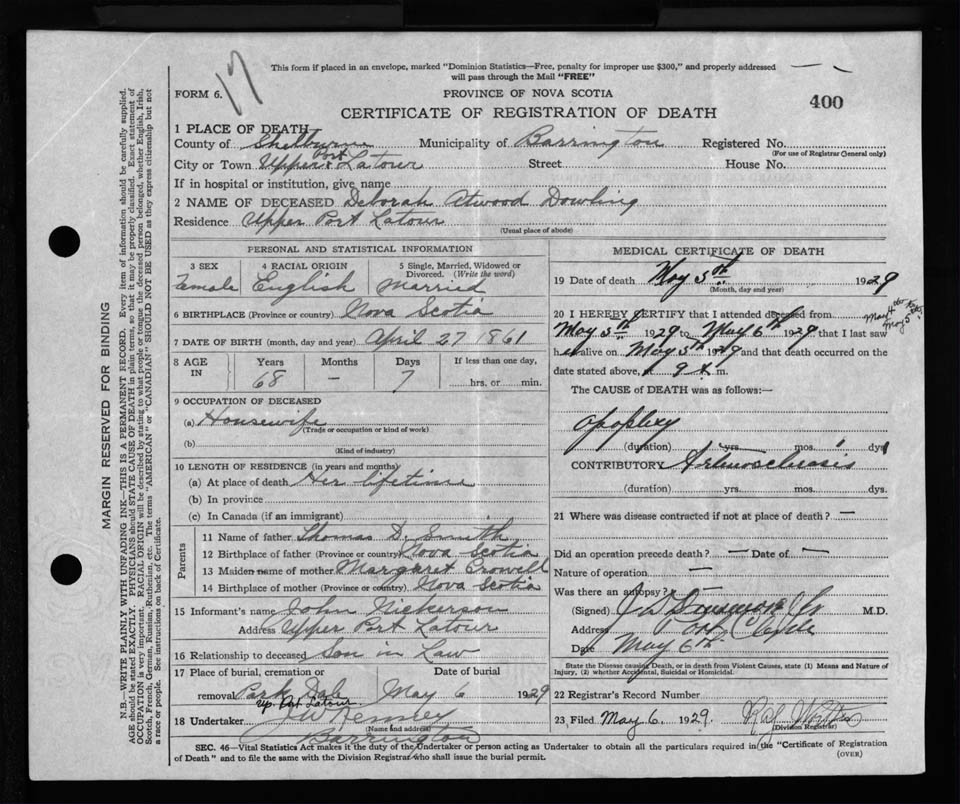 This form if placed in an envelope, marked "Dominion Statistics—Free, penalty for improper use $300," and properly addressed
will pass through the Mail "FREE"
17
FORM 6.
PROVINCE OF NOVA SCOTIA
400
CERTIFICATE OF REGISTRATION OF DEATH
1 PLACE OF DEATH
County of Shelburne Municipality of Barrington Registered No.
(For use of Registrar General only)
City or Town Upper Port Latour Street House No.
If in hospital or institution, give name
2 NAME OF DECEASED Deborah Atwood Dowling
Residence Upper Port Latour
(Usual place of abode)
PERSONAL AND STATISTICAL INFORMATION
3 SEX 4 RACIAL ORIGIN 5 Single, Married, Widowed or
Divorced. (Write the word)
Female English Married
6 BIRTHPLACE (Province or country) Nova Scotia
7 DATE OF BIRTH (month, day and year) April 27 1861
8 AGE IN Years Months Days If less than one day,
68 – 7 hrs. or min.
9 OCCUPATION OF DECEASED
(a) Housewife
(Trade or occupation or kind of work)
(b)
(Kind of industry)
10 LENGTH OF RESIDENCE (in years and months)
(a) At place of death Her lifetime
(b) In province
(c) In Canada (if an immigrant)
Parents
11 Name of father Thomas D. Smith
12 Birthplace of father (Province or country) Nova Scotia
13 Maiden name of mother Margaret Crowell
14 Birthplace of mother (Province or country) Nova Scotia
15 Informant's name John Nickerson
Address Upper Port Latour
16 Relationship to deceased Son in Law
17 Place of burial, cremation or Date of burial
removal Park Dale May 6 1929
Up. Port Latour
18 Undertaker J W
(Name and address)
Barrington
MEDICAL CERTIFICATE OF DEATH
19 Date of death May 5th 1929
(Month, day and year)
20 I HEREBY CERTIFY that I attended deceased from
May 5th 1929 to May 6th 1929 that I last saw
h er alive on May 5th 1929 and that death occurred on the
date stated above, 9 m.
The CAUSE of DEATH was as follows:—
apoplexy
(duration) yrs. mos. dys. 1
CONTRIBUTORY Arteriosclerosis
(duration) yrs. mos. dys.
21 Where was disease contracted if not at place of death? —
Did an operation precede death? — Date of —
Nature of operation —
Was there an autopsy?
(Signed) M.D.
Address Port Clyde
Date May 6th
State the Disease causing Death, or in death from Violent Causes, state (1) Means and Nature of
Injury, (2) whether Accidental, Suicidal or Homicidal.
22 Registrar's Record Number
23 Filed May 6. 1929.
(Division Registrar)
SEC. 46—Vital Statistics Act makes it the duty of the Undertaker or person acting as Undertaker to obtain all the particulars required in the "Certificate of Registration
of Death" and to file the same with the Division Registrar who shall issue the burial permit. (OVER)
MARGIN RESERVED FOR BINDING
N.B.—WRITE PLAINLY WITH UNFADING INK—THIS IS A PERMANENT RECORD. Every item of information should be carefully supplied.
AGE should be stated EXACTLY. PHYSICIANS should STATE CAUSE OF DEATH in plain terms, so that it may be properly classified. Exact statement of
OCCUPATION is very important. RACIAL ORIGIN will be described by stating to what people or tongue the deceased person belonged, whether English, Irish,
Scotch, French, German, Russian, Ruthenian, etc. The terms "AMERICAN" or "CANADIAN" SHOULD NOT BE USED as they express citizenship but not
a race or people. See instructions on back of Certificate.